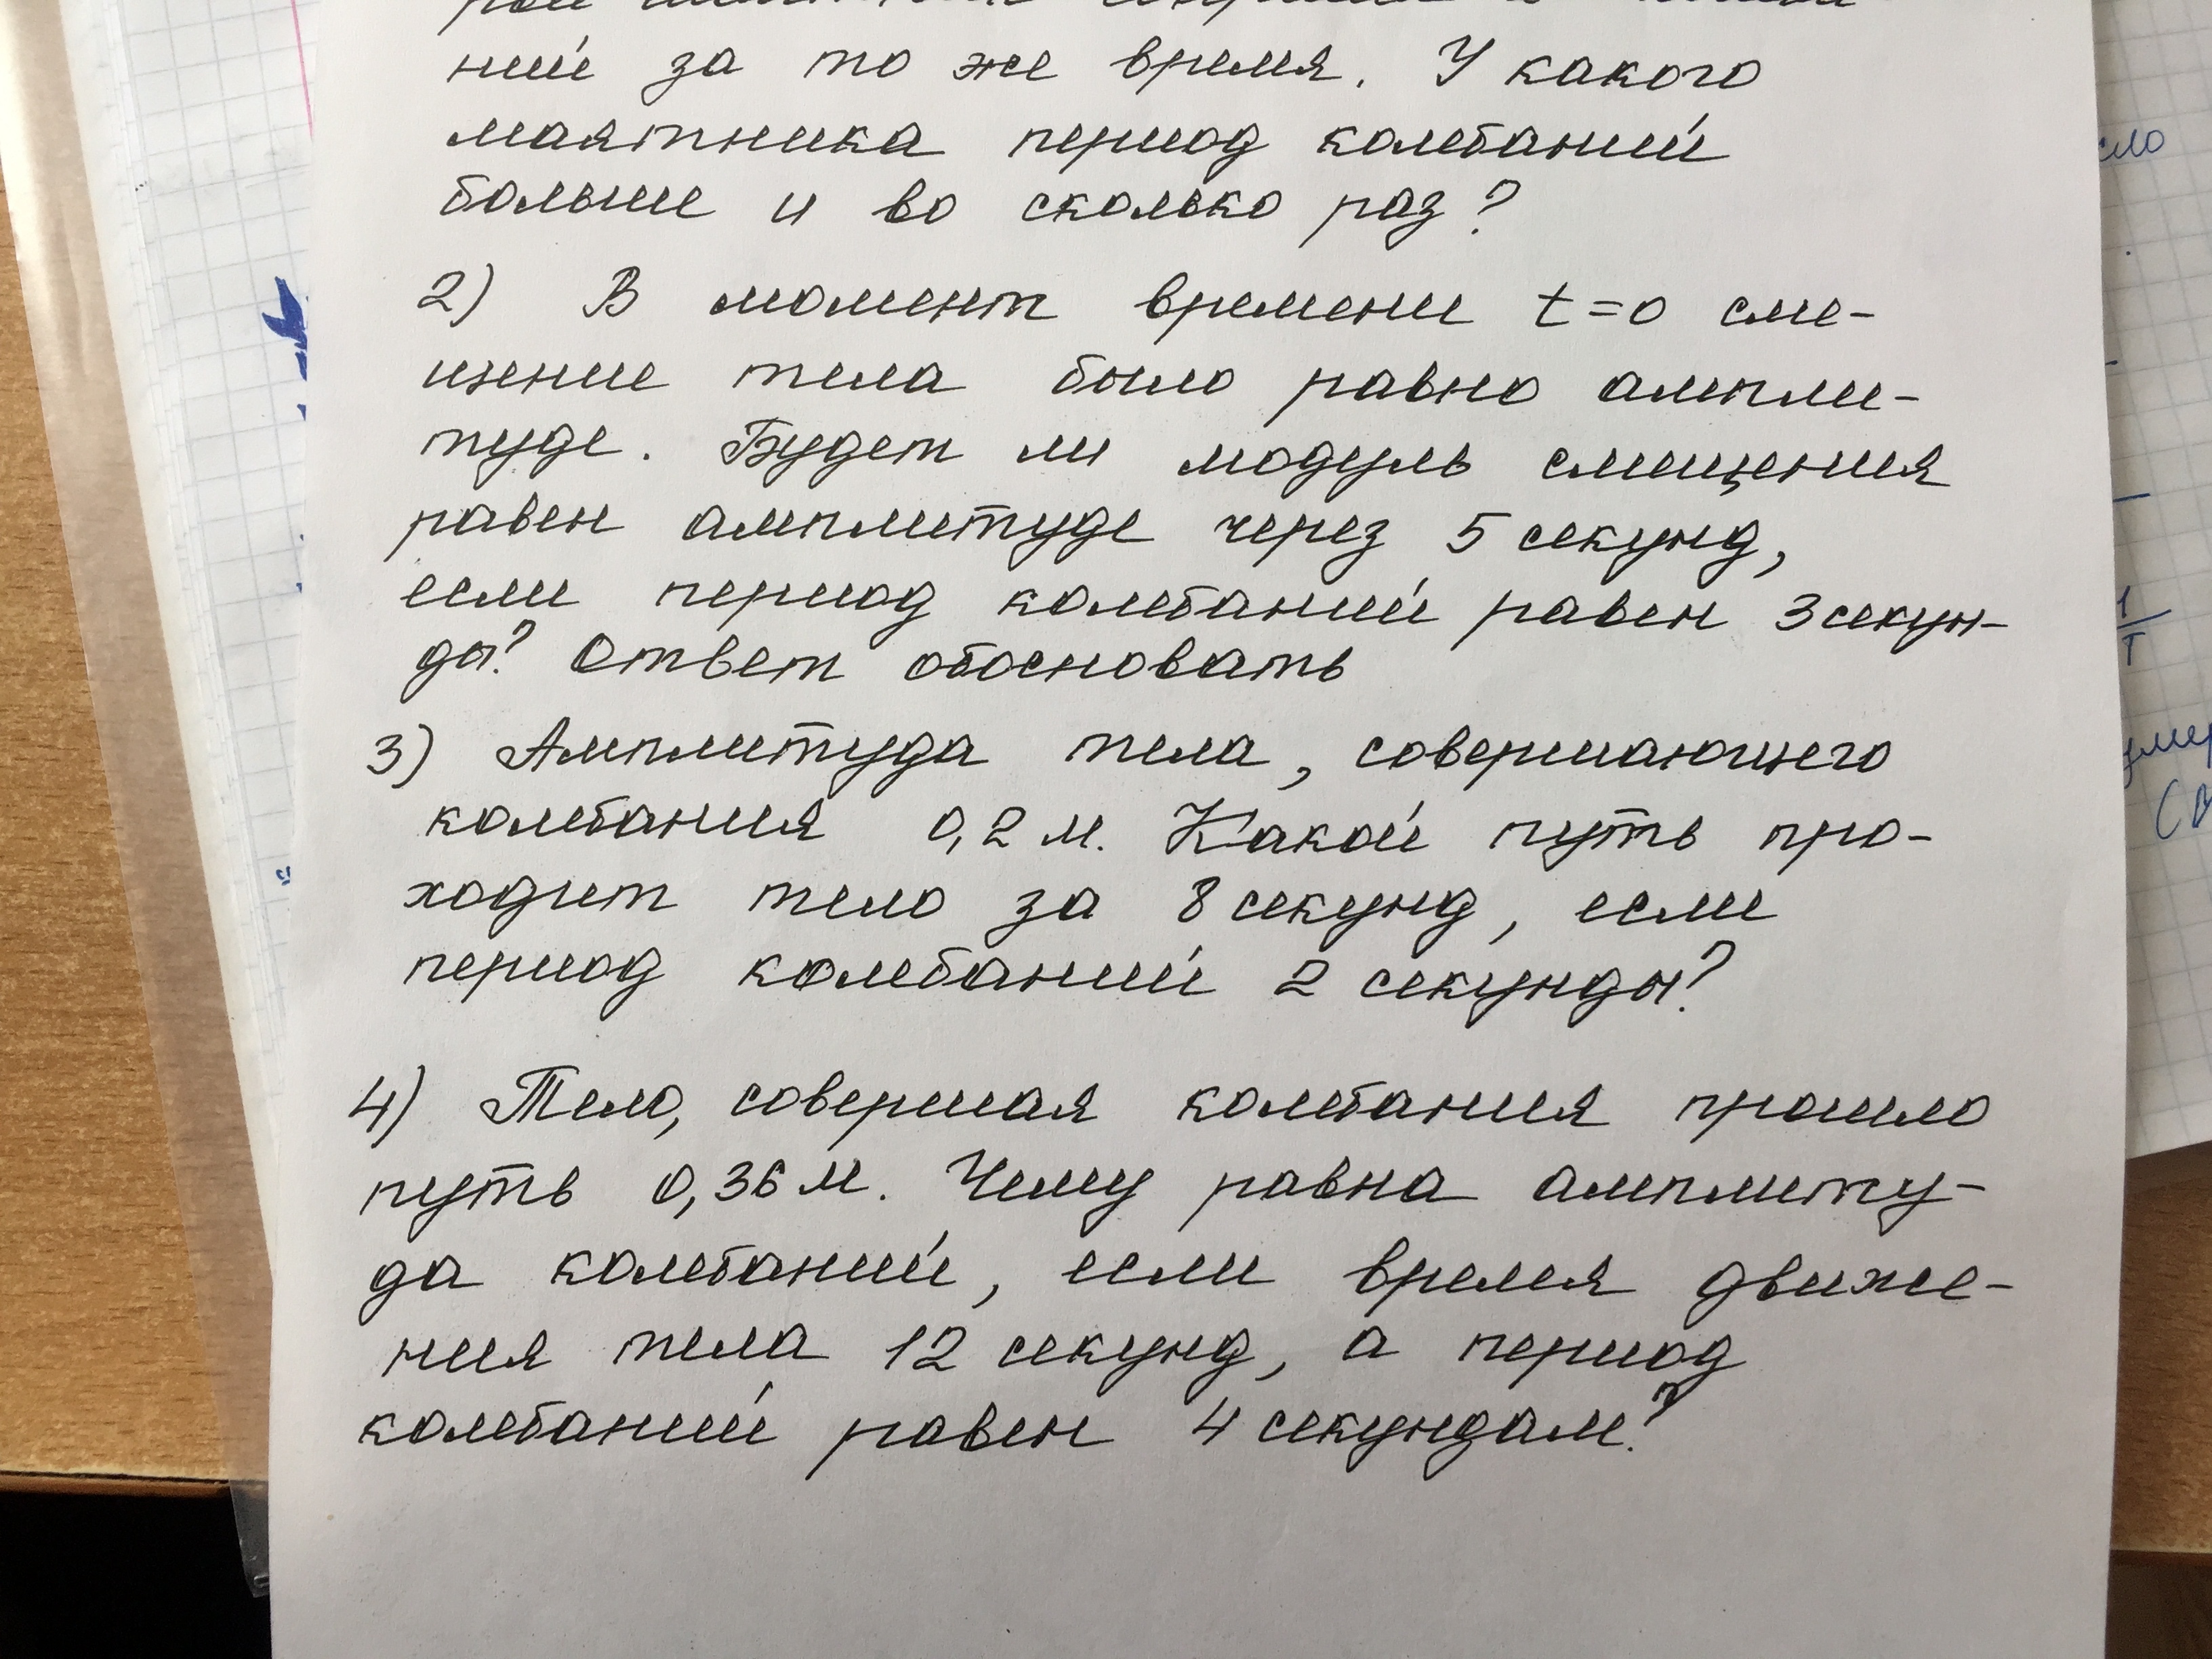 ний за то же время. У какого
маятника период колебаний
больше и во сколько раз?
2) В момент времени t=0 сме-
щение тела было равно ампли-
туде. Будет ли модуль смещения
равен амплитуде через 5 секунд,
если период колебаний равен 3 секун-
ды? Ответ обосновать
3) Амплитуда тела, совершающего
колебания 0,2 м. Какой путь про-
ходит тело за 8 секунд, если
период колебаний 2 секунды?
4) Тело, совершая колебания прошло
путь 0,36 м. Чему равна амплиту-
да колебаний, если время движе-
ния тела 12 секунд, а период
колебаний равен 4 секундам?
1
T